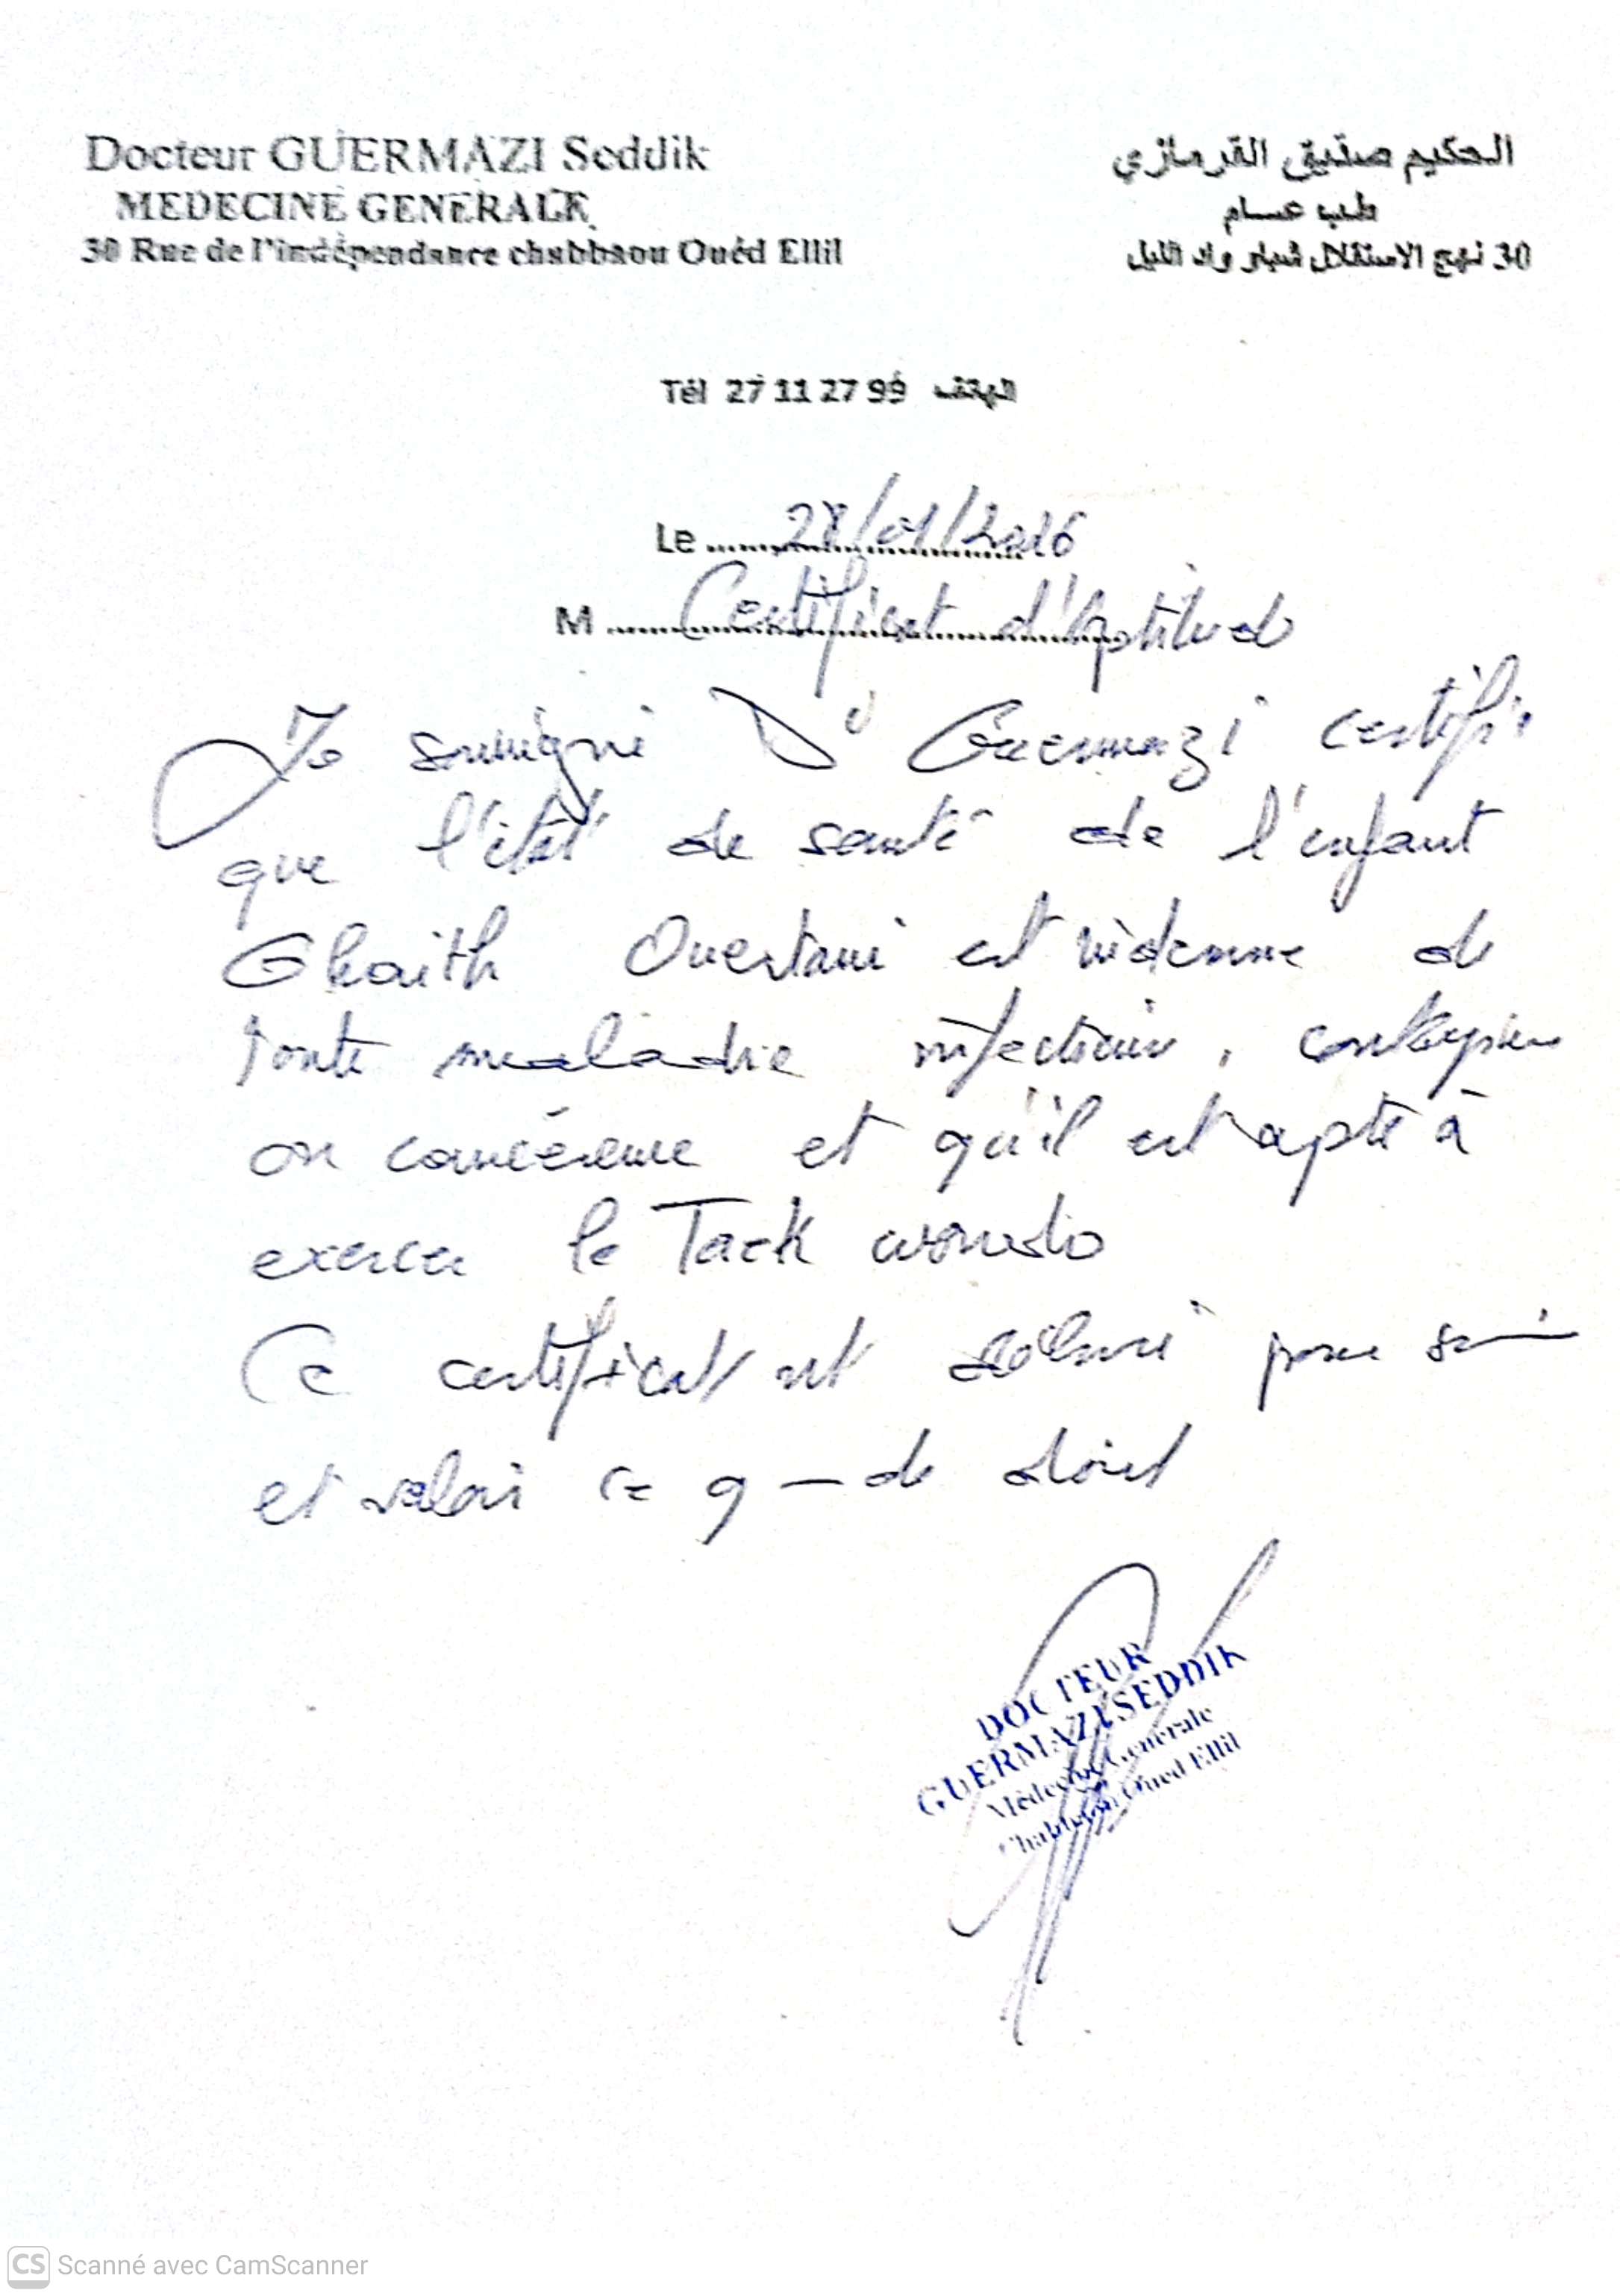 Docteur GUERMAZI Seddik
MEDECINE GENERALE
30 Rue de l'indépendance chabbaou Ouéd Ellil
الحكيم صديق القرمازي
طب عام
30 نهج الاستقلال شباو واد الليل
Tél 27 11 27 99 الهاتف
Le 28/01/2026
M Certificat d'Aptitude
Je soussigné Dr Guermazi certifie
que l'état de santé de l'enfant
Ghaith Ouestani est indemne de
toute maladie infectieuse, contagieuse
ou cancéreuse et qu'il est apte à
exercer le Taek wondo
Ce certificat est délivré pour servir
et valoir ce q de droit
DOCTEUR
GUERMAZI SEDDIK
Médecine Générale
Chabbaou Oued Ellil
CS Scanné avec CamScanner